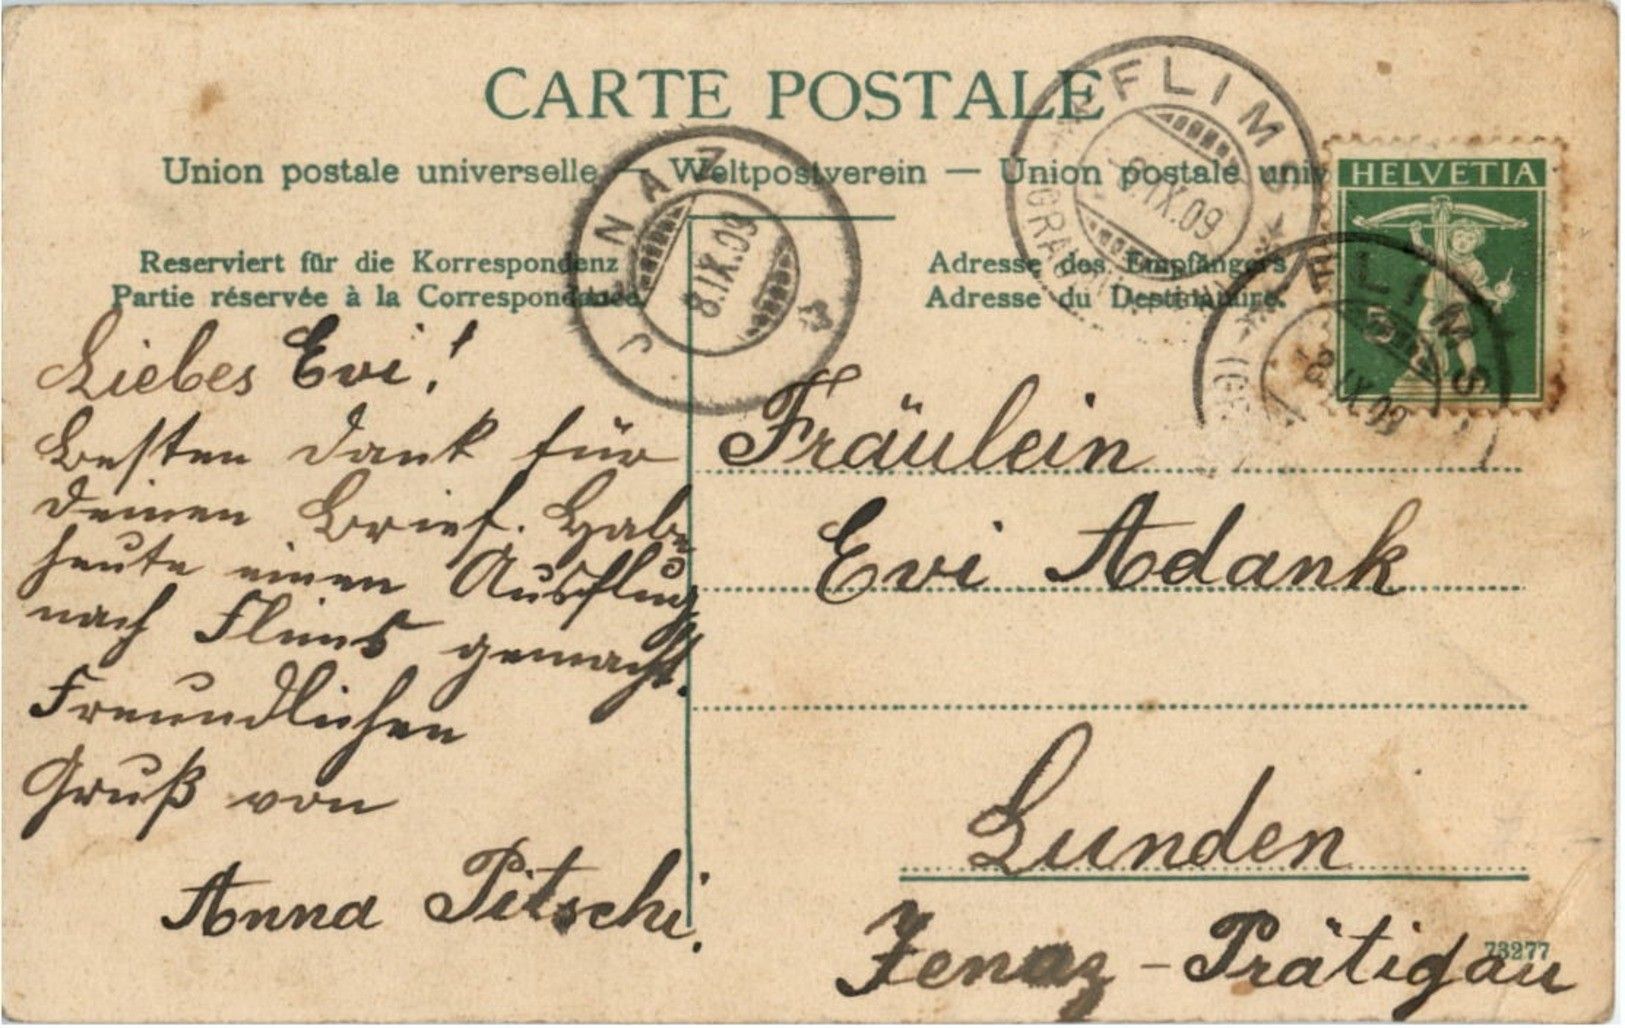 CARTE POSTALE
Union postale universelle — Weltpostverein — Union postale univ
Reserviert für die Korrespondenz
Partie réservée à la Correspondance.
Adresse des Empfängers
Adresse du Destinataire.
JENAZ
8.IX.09
FLIMS
8.IX.09
HELVETIA
5
FLIMS
IX.09
Liebes Evi!
Besten Dank für
Deinen Brief. Habe
heute einen Ausflug
nach Flims gemacht.
Freundlichen
Gruß von
Anna Pitschi.
Fräulein
Evi Adank
Lunden
Jenaz - Prätigau
73277